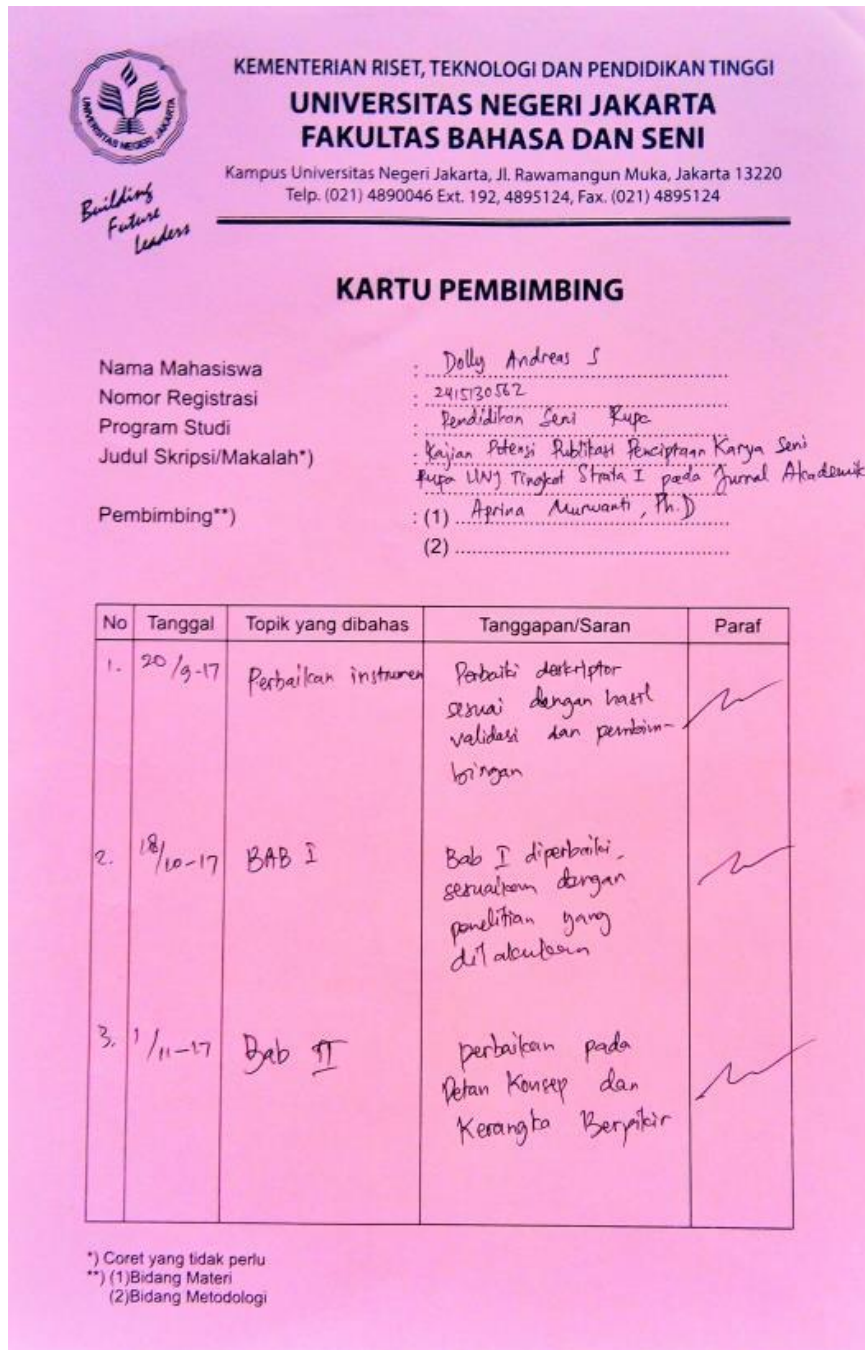 UNIVERSITAS NEGERI JAKARTA
KEMENTERIAN RISET, TEKNOLOGI DAN PENDIDIKAN TINGGI
UNIVERSITAS NEGERI JAKARTA
FAKULTAS BAHASA DAN SENI
Kampus Universitas Negeri Jakarta, Jl. Rawamangun Muka, Jakarta 13220
Telp. (021) 4890046 Ext. 192, 4895124, Fax. (021) 4895124
Building
Future
Leaders
KARTU PEMBIMBING
Nama Mahasiswa : Dolly Andreas S
Nomor Registrasi : 2415130562
Program Studi : Pendidikan Seni Rupa
Judul Skripsi/Makalah*) : Kajian Potensi Publikasi Penciptaan Karya Seni
Rupa UNJ Tingkat Strata I pada Jurnal Akademik
Pembimbing**) : (1) Aprina Murwanti, Ph.D
(2)
No Tanggal Topik yang dibahas Tanggapan/Saran Paraf
1. 20/9-17 Perbaikan instrumen Perbaiki deskriptor
sesuai dengan hasil
validasi dan pembim-
bingan
2. 18/10-17 BAB I Bab I diperbaiki,
sesuaikan dengan
penelitian yang
dilakukan
3. 1/11-17 Bab II perbaikan pada
Petan Konsep dan
Kerangka Berpikir
*) Coret yang tidak perlu
**) (1)Bidang Materi
(2)Bidang Metodologi